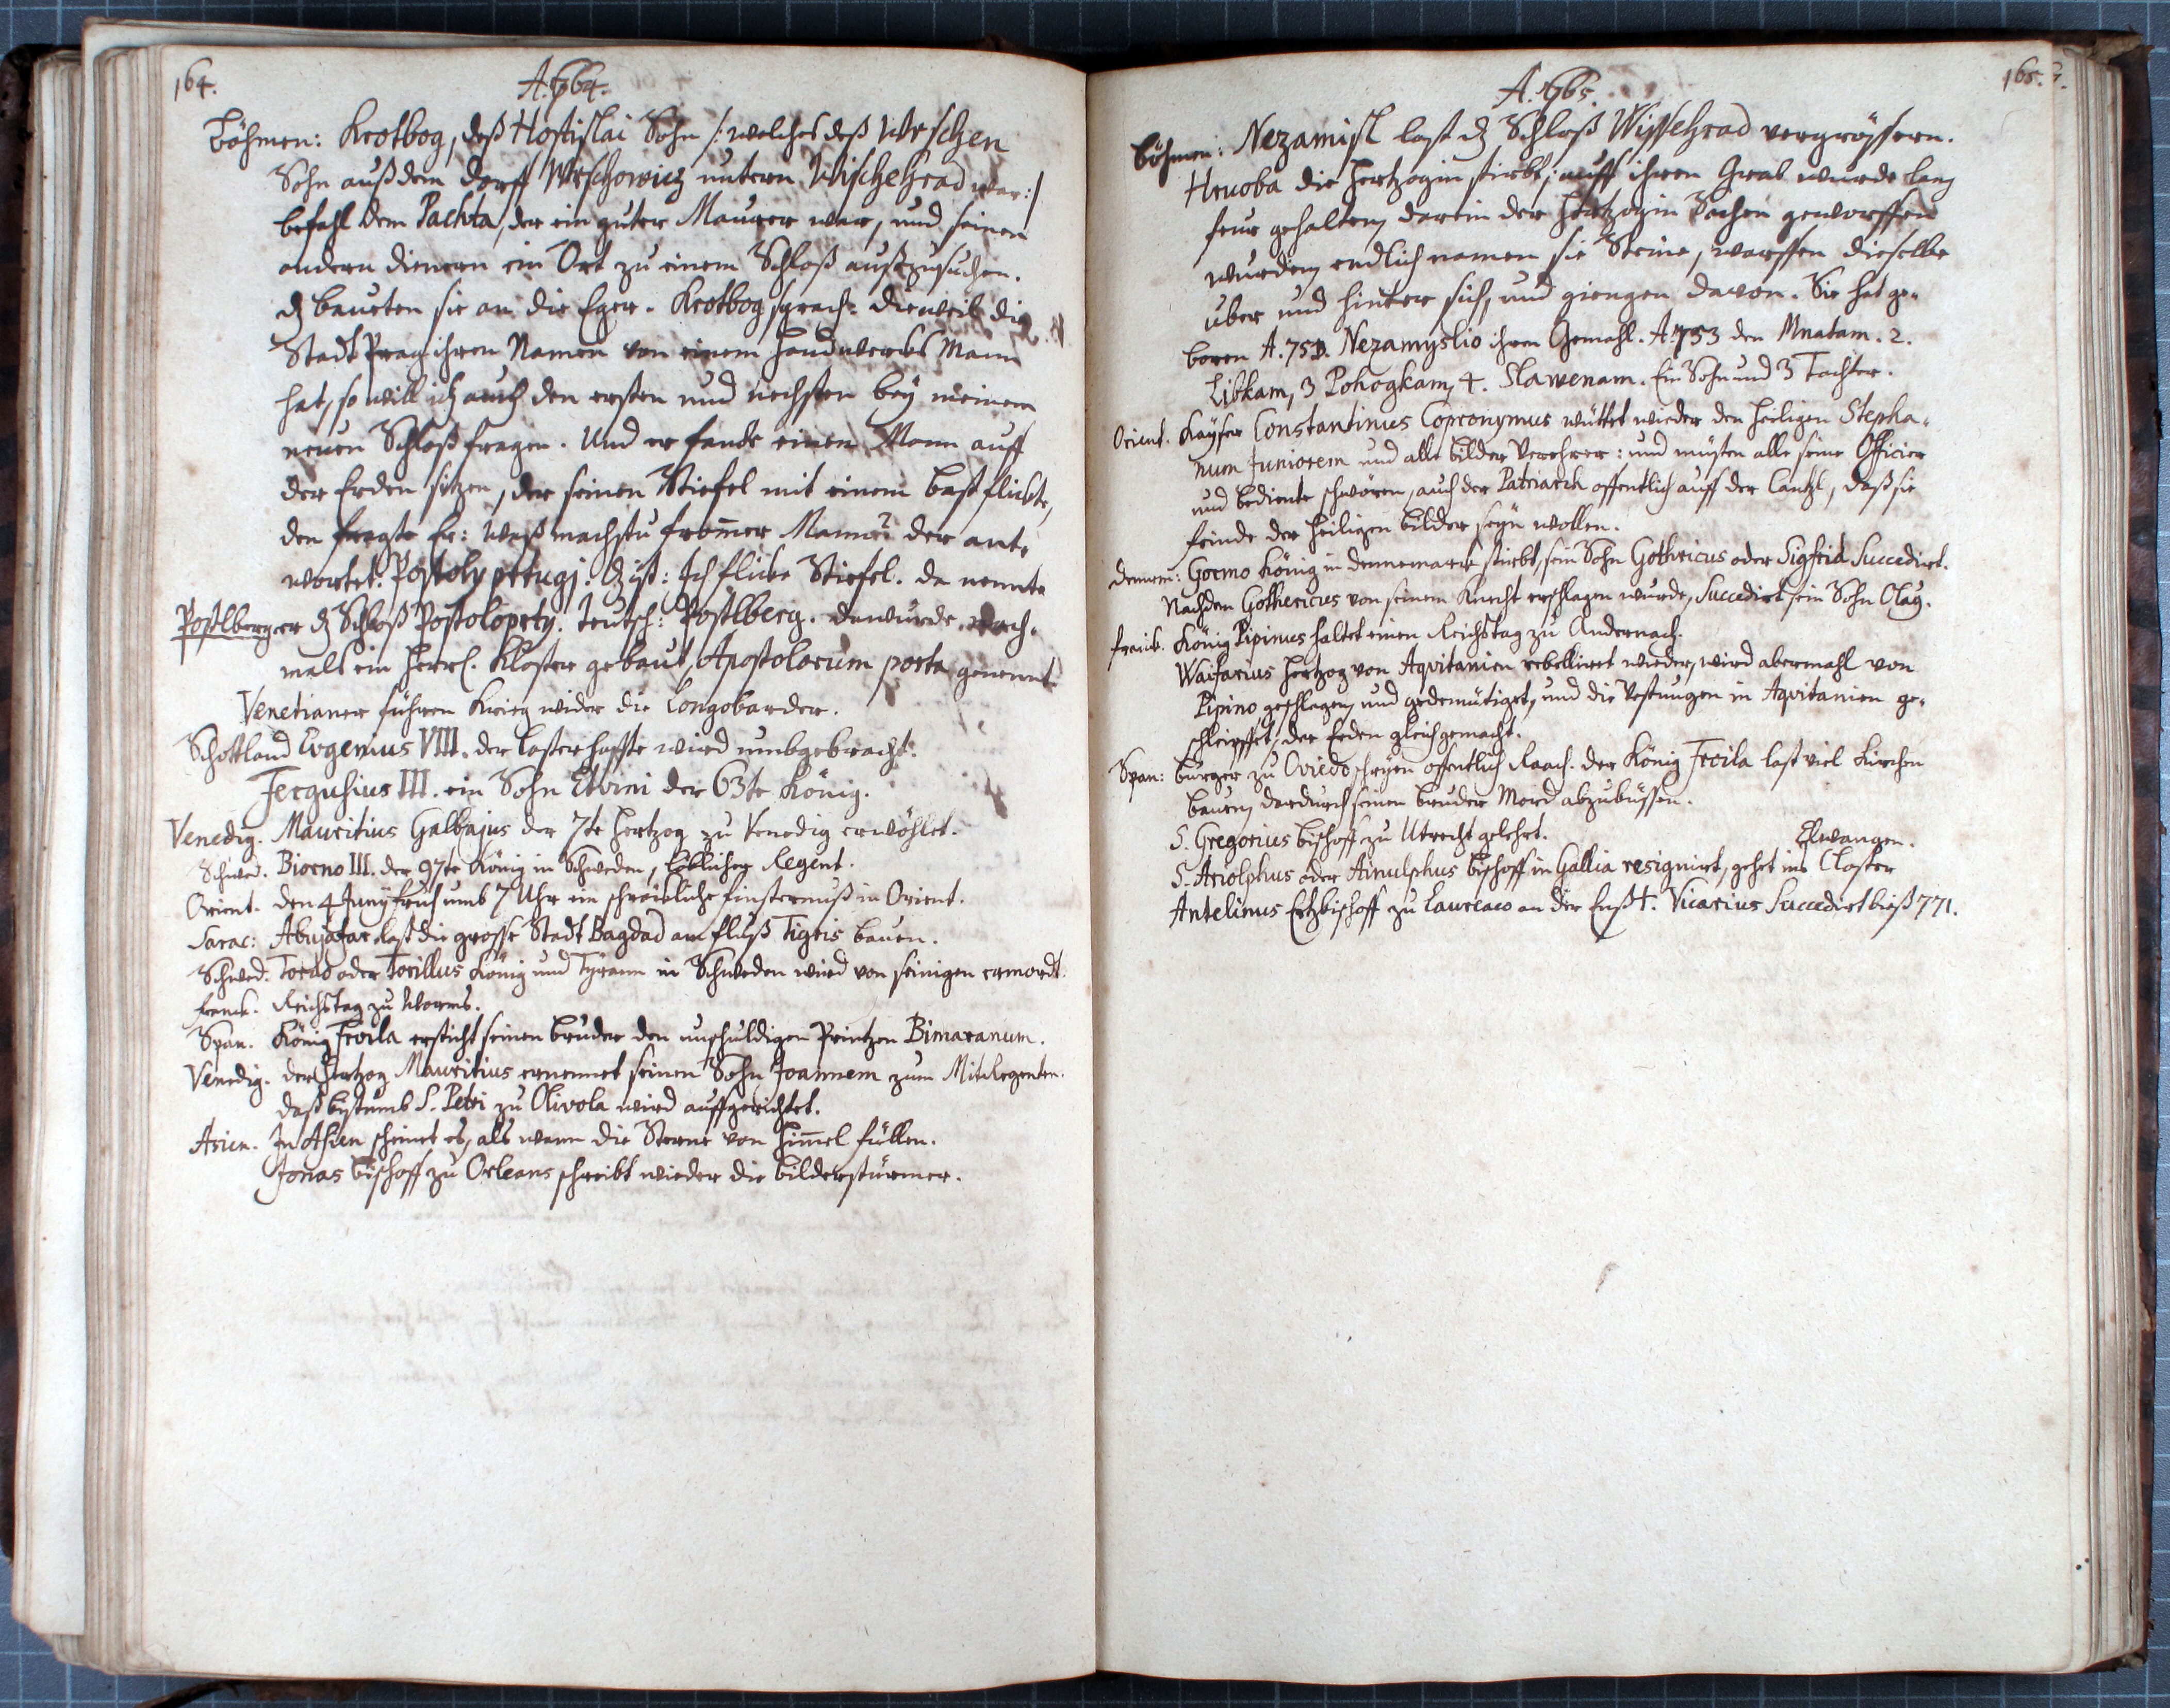 164.
A. 764.
Böhmen: Krotbog, deß Hostislai Sohn /: welches deß Wrschen
Sohn auß dem Dorff Wrschowicz untern Wischehrad war :/
befahl dem Pachta, der ein guter Maurer war, und seinen
andern dienern ein Ort zu einem Schloß außzusuchen.
dz bauten sie an die Eger. Krotbog sprach: dieweil die
Stadt Prag ihren Namen von einem Handwercks Mann
hat, so will ich auch den ersten und nechsten bey meinem
neuen Schloß fragen. Und er fande einen Mann auff
der Erden sitzen, der seinen Stiefel mit einem bast flickte,
den fragte Er: waß machstu fromer Mann? der ant-
wortet: Postoly pttugj. dz ist: Ich flicke Stiefel. da nennte
Postlberg er dz Schloß Postoloprty. Teutsch: Postlberg. da wurde nach-
mals ein Herrl. Kloster gebaut, Apostolorum porta genennt
Venetianer führen Krieg wider die Longobarder.
Schottland Evgenius VIII. der lasterhaffte wird umbgebracht.
Fergusius III. ein Sohn Etvini der 63te König.
Venedig. Mauritius Galbajus der 7te Hertzog zu Venedig erwöhlet.
Schwed. Biorno III. der 97te König in Schweden, Löblicher Regent.
Orient. den 4 Juny fruh umb 7 Uhr ein schröckliche finsternuß in Orient.
Sarac: Abujafar last die grosse Stadt Bagdad am fluß Tigris bauen.
Schwed. Tordo oder Torillus König und Tyrann in Schweden wird von seinigen ermordt.
Franck. Reichstag zu Worms.
Span. König Froila ersticht seinen bruder den unschuldigen Printzen Bimaranum.
Venedig. der Hertzog Mauritius ernennet seinen Sohn Joannem zum MitRegenten.
daß bistumb S. Petri zu Olivola wird auffgerichtet.
Asien. In Asien scheinet es, als wann die Sterne von Himel füllen.
Jonas bischoff zu Orleans schreibt wieder die bilderstürmer.
165.
A. 765.
Böhmen: Nezamisl last dz Schloß Wissehrad vergrössern.
Hruoba die Hertzogin stirbt; auff ihren Grab wurde lang
feur gehalten, darein der Hertzogin Sachen geworffen
wurden, endlich namen sie Steine, warffen dieselbe
uber und hinter sich, und giengen davon. Sie hat ge-
boren A. 753. Nezamyslio ihren Gemahl. A. 753 den Mnatam. 2.
Libkam, 3 Pohogkam, 4. Slawenam. Ein Sohn und 3 Tochter.
Orient. Kayser Constantinus Copronymus wüttet wieder den heiligen Stepha-
num Juniorem und alle bilder Verehrer: und müsten alle seine Officier
und bediente schwören, auch der Patriarch offentlich auff der Cantzl, daß sie
feinde der heiligen bilder seyn wollen.
Dennem: Gormo König in dennemarck stirbt, sein Sohn Gothricus oder Sigfrid Succedirt.
Nachdem Gothericus von seinem Knecht erschlagen wurde, Succedirt sein Sohn Olag.
Franck. König Pipinus haltet einen Reichstag zu Andernach.
Waifarius Hertzog von Aqvitanien rebelliret wieder, wird abermahl von
Pipino geschlagen, und gedemütiget, und die Vestungen in Aqvitanien ge-
schleipffet, der Erden gleich gemacht.
Span: bürger zu Oviedo schryen offentlich Raach. der König Froila last viel Kirchen
bauen, dardurch seinen bruder Mord abzubüssen.
S. Gregorius bischoff zu Utrecht gelehrt.
Elwangen.
S. Ariolphus oder Airulphus bischoff in Gallia resignirt, gehet ins Closter
Antelinus Ertzbischoff zu Laureaco an der Enß †. Vicarius Succedirt biß 771.